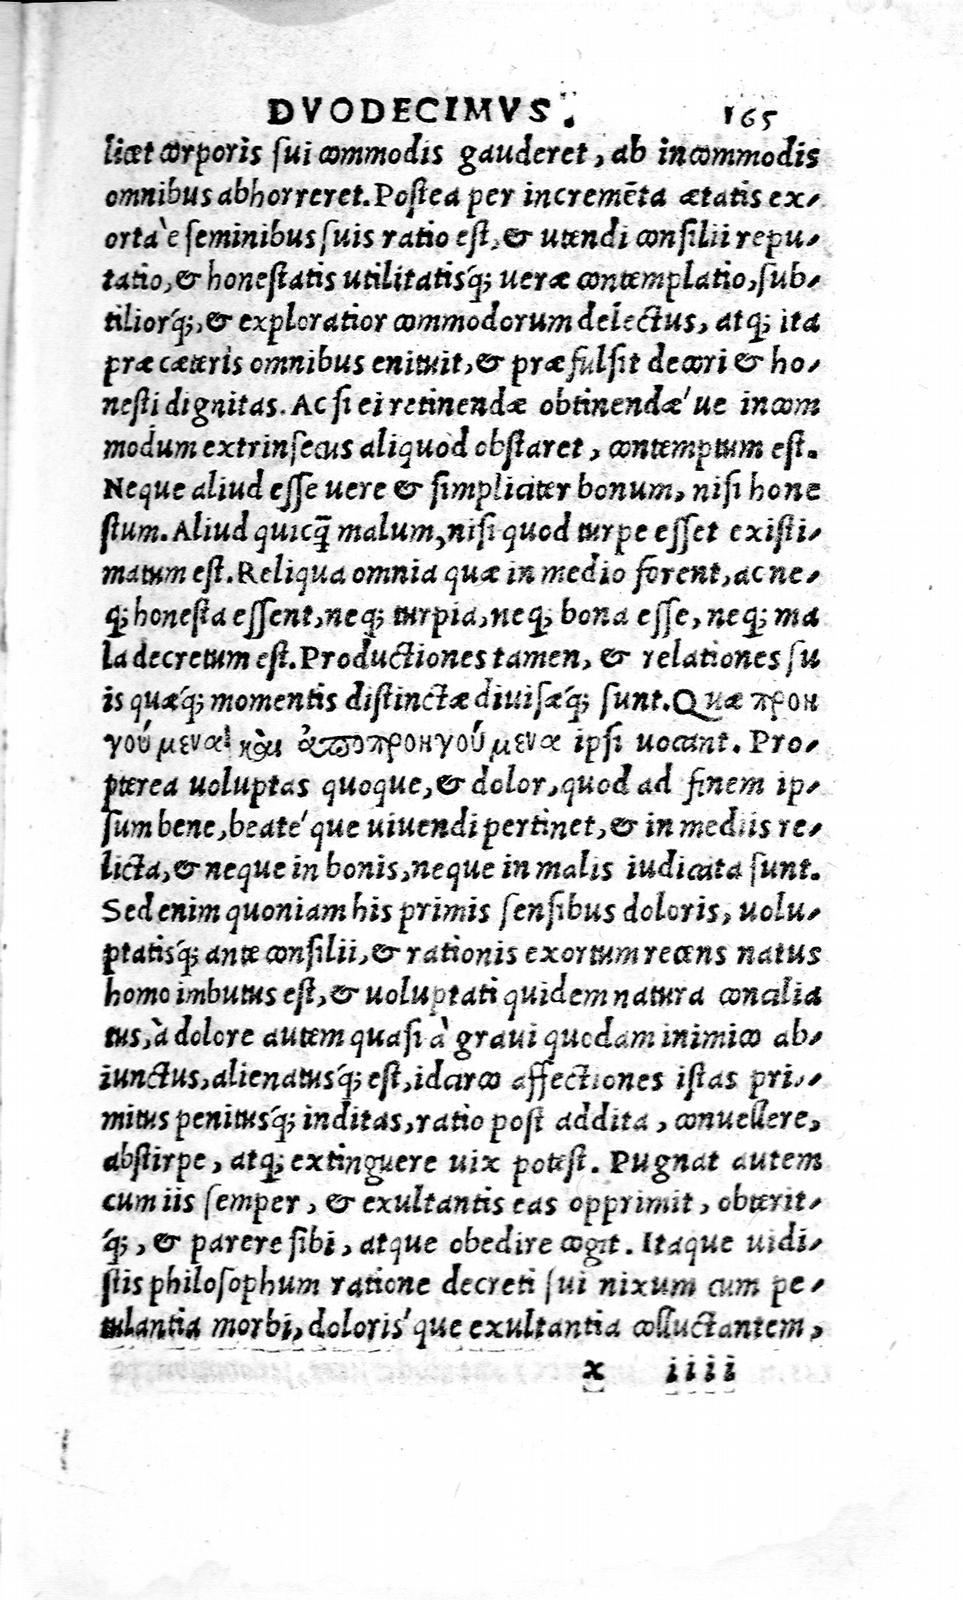 DVODECIMVS. 165
licet corporis sui commodis gauderet, ab incommodis
omnibus abhorreret. Postea per incremēta ætatis ex-
orta è seminibus suis ratio est, & utendi consilii repu-
tatio, & honestatis utilitatisq́; ueræ contemplatio, sub-
tiliorq́;, & exploratior commodorum delectus, atq; ita
præ cæteris omnibus enituit, & præfulsit decori & ho-
nesti dignitas. Ac si ei retinendæ obtinendæ´ue incom
modum extrinsecus aliquod obstaret, contemptum est.
Neque aliud esse uere & simpliciter bonum, nisi hone
stum. Aliud quicq̄ malum, nisi quod turpe esset existi-
matum est. Reliqua omnia quæ in medio forent, ac ne-
q; honesta essent, neq; turpia, neq; bona esse, neq; ma
la decretum est. Productiones tamen, & relationes su
is quæq́; momentis distinctæ diuisæq́; sunt. Quæ προη
γούμενα καὶ ἀποπροηγούμενα ipsi uocant. Pro-
pterea uoluptas quoque, & dolor, quod ad finem ip-
sum bene, beate´que uiuendi pertinet, & in mediis re-
licta, & neque in bonis, neque in malis iudicata sunt.
Sed enim quoniam his primis sensibus doloris, uolu-
ptatisq́; ante consilii, & rationis exortum recens natus
homo imbutus est, & uoluptati quidem natura concilia
tus, à dolore autem quasi à graui quodam inimico ab-
iunctus, alienatusq́; est, idcirco affectiones istas pri-
mitus penitusq́; inditas, ratio post addita, conuellere,
abstirpe, atq; extinguere uix potest. Pugnat autem
cum iis semper, & exultantis eas opprimit, obterit-
q́;, & parere sibi, atque obedire cogit. Itaque uidi-
stis philosophum ratione decreti sui nixum cum pe-
tulantia morbi, doloris´que exultantia colluctantem,
x iiii